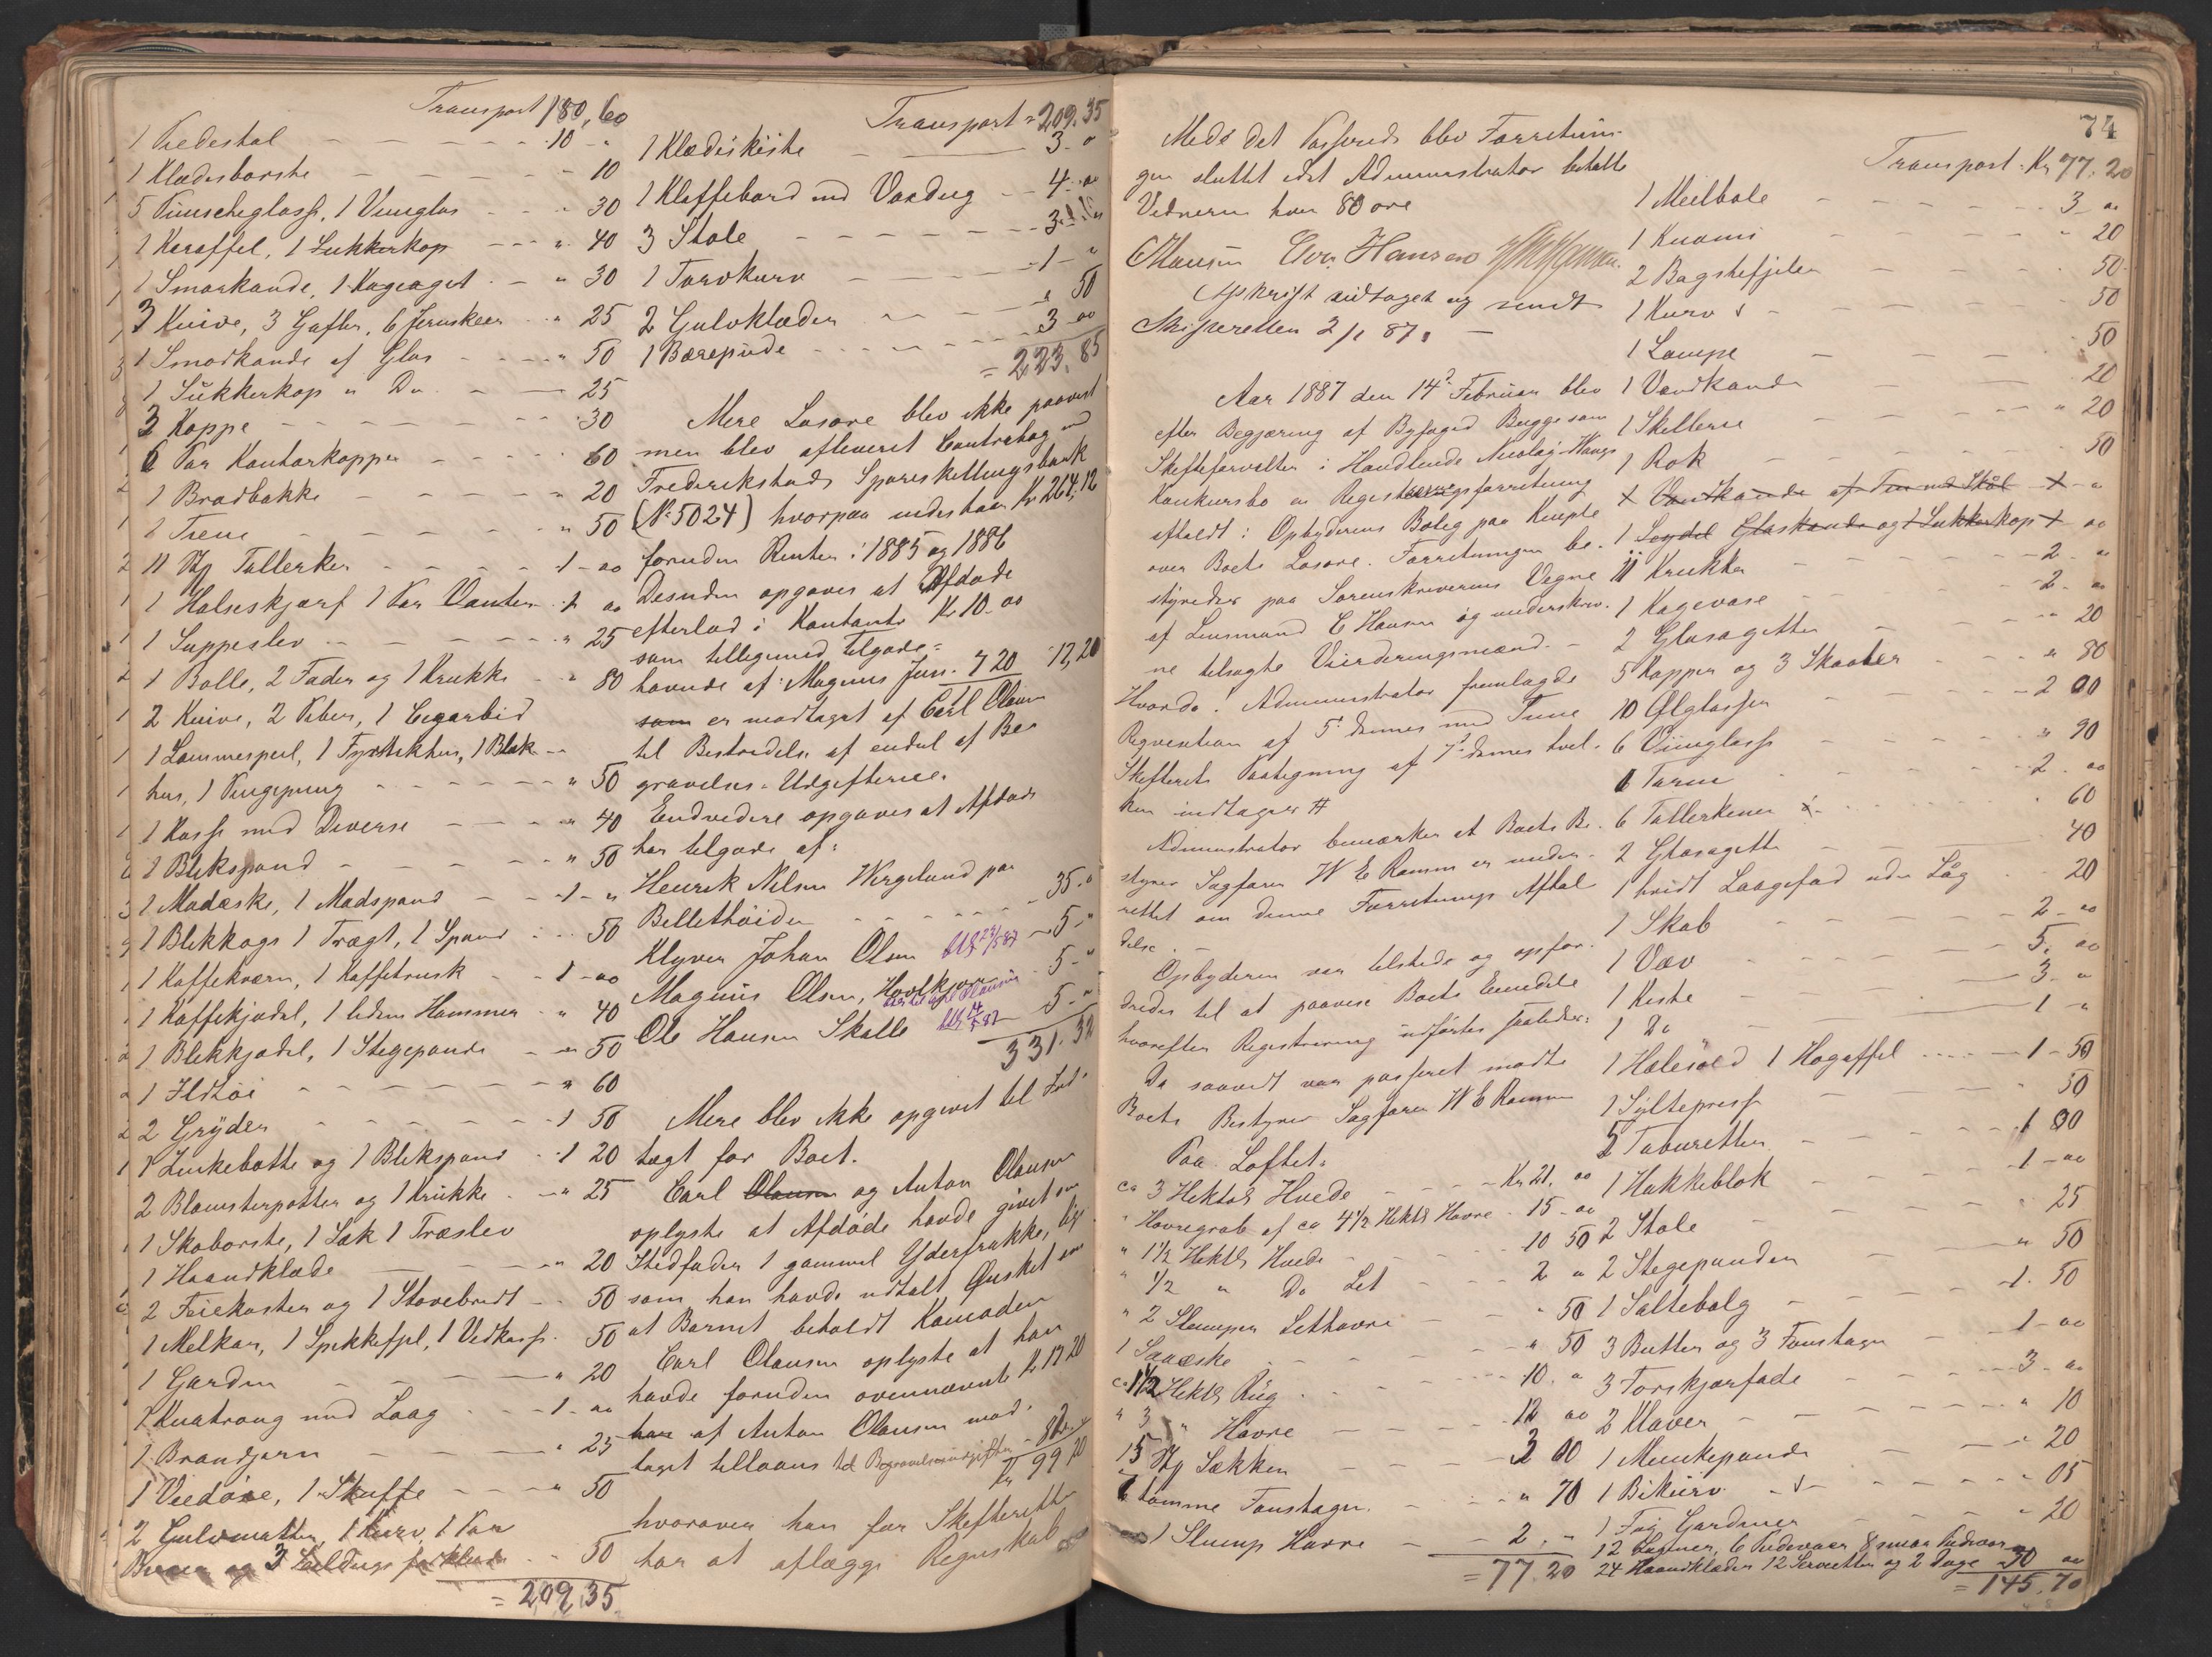 Transport 180,60
1 Piedestal - 10 -
1 Klædesbørste - " 10
5 Punscheglass, 1 Vinglas - " 30
1 Karaffel, 1 Sukkerkop - " 40
1 Smørkande, 1 Kageaget - " 30
3 Knive, 3 Gafler, 6 Jernskeer - " 25
1 Smørkande af Glas - " 50
1 Sukkerkop " Do - 25
3 Koppe - 30
6 Par Kontorkopper - 60
1 Brødbakke - " 20
1 Trene - " 50
11 Stk Tallerker - 1 - oo
1 Halseskjærf 1 Par Vanter - 1 oo
1 Suppeslev - " 25
1 Bolle, 2 Fader og 1 Krukke - " 80
2 Knive, 2 Piber, 1 Cegarbid
1 Lommespeil, 1 Fyrstikhus, 1 Blæk-
hus, 1 Pengepung - " 50
1 Kasse med Diverse - " 40
1 Blikspand - " 50
1 Madæske, 1 Madspand - 1 - "
1 Blikkags 1 Tragt, 1 Spand - 50
1 Kaffekværn, 1 Kaffetrusk - 1 - oo
1 Kaffekjedel, 1 liden Hammer - " 40
1 Blikkjedel, 1 Stegepande - " 50
1 Ildtøi - " 60
2 Gryder - 1 50
1 Zinkebøtte og 1 Blikspand - 1 20
2 Blomsterpotter og 1 Krukke - " 25
1 Skobørste, 1 Sæk 1 Træslev
1 Haandklæde - " 20
2 Feiekoster og 1 Støvebret - 50
1 Melkar, 1 Spikkefjel, 1 Vedkasse - 50
1 Gardin - " 20
1 Knatroug med Laag - 1 - oo
1 Brandjern - " 25
1 Vedøxe, 1 Skuffe - " 50
2 Gulvmatter, 1 Kurv, 1 Par
og 3 - 50
= 209,35
Transport = 209.35
1 Klædeskiste - 3 - o
1 Klaffebord med Voxdug - 4 - oo
3 Stole - 3
1 Torvkurv - 1 - "
2 Gulvklæder - " 50
1 Bærepude - 3 - oo
= 223.85
Mere Løsøre blev ikke paavist
men blev afleveret Contrabog med
Frederikstads Spareskillingsbank
(No 5024) hvorpaa indestaar Kr 264,12
foruden Renter i 1885 og 1886
Desuden opgaves at Afdøde
efterlod i Kontante Kr 10 - oo
som tilligemed tilgode-
havende af Magnus Jun. 7 20 17,20
som er modtaget af Carl Olausen
til Bestridelse af endel af Be-
gravelses-Udgifterne.
Endvidere opgaves at Afdøde
har tilgode af:
Henrik Nilsen Wergeland paa
Billethøiden - 35 - o
Klyver Johan Olsen 5 - "
Magnus Olsen, 5 - "
Ole Hansen Skalle 5 - "
331.32
Mere blev ikke opgivet til Ind-
tægt for Boet.
Carl Olausen og Anton Olausen
oplyste at Afdøde havde givet sin
Stedfader 1 gammel Yderfrakke, lige-
som han havde udtalt Ønsket om
at Barnet beholdt Komoden
Carl Olausen oplyste at han
havde foruden ovennævnte Kr 17 20
har af Anton Olausen mod-
taget tillaans til Begravelsesudgifter - 82
Kr 99 20
hvorover han for Skifteretten
har at aflægge Regnskab
74
Med det Passerede blev Forretnin-
gen sluttet idet Administrator betalte
Vidnerne hver 80 øre
CHansen Hansen
Afskrift udtaget og sendt
Skifteretten 2/1 87. -
Aar 1887 den 14de Februar blev
efter Begjæring af Byfoged Bugge som
Skifteforvalter i Handlende Nicolaj Haugs
Konkursbo en Registreringsforretning
afholdt i Opbyderens Bolig paa Kirupte
over Boets Løsøre. Forretningen be-
styredes paa Sorenskriverens Vegne
af Lensmand C Hansen og underskrev-
ne tilsagte Vurderingsmænd. -
Hvorda: Administrator fremlagde
Reqvisition af 5te dennes med Tune
Skifterets Paategning af 7de dennes hvil-
ken indtages #
Administrator bemærker at Boets Be-
styrer Sagfører W E Ramm er under-
rettet om denne Forretnings Afhol-
delse. -
Opbyderen var tilstede og opfor-
dredes til at paavise Boets Eiendele
hvorefter Registrering udførtes saaledes:
Da saavidt var passeret mødte
Boets Bestyrer Sagfører W E Ramm
Paa Loftet:
ca 3 Hektol Hvede - Kr 21, oo
" Havregrøb af ca 4½ Hektl Havre - 15 - oo
" 1½ Hektl Hvede - 10 50
" ½ " Do Let - 2 "
" 2 Slumper Lethavre - " 50
1 Saaæske - " 50
ca 1½ Hektl Rug - 10. "
" 3 " Havre - 12 oo
15 Stk Sækker - 3 00
6 tomme Foustager - " 70
1 Slump Havre - 2, "
= 77.20
Transport. Kr 77.20
1 Meilbale - 3 oo
1 Knoms - " 20
2 Bagstefjeler - 50
1 Kurv - 50
1 Lampe - 50
1 Vandkande - 20
1 Skillerie - " 20
1 Rok - 50
1 Vandkande af Tin med Skål
1 Seydel Glaskande og 1 Sukkerkop oo
11 Krukker - 2 - "
1 Kagevase - 2 - oo
2 Glasagetter - " 20
5 Kopper og 3 Skaaler - " 80
10 Ølglasser - 2 00
6 Vinglass - " 90
1 Tarin - 2 . oo
6 Tallerkener - 60
2 Glasagetter - 40
1 hvidt Laagefad uden Låg - 20
1 Skab - 2 - oo
1 Væv - 5. oo
1 Kiste - 3 - "
1 Do - 1 - "
1 Hølesold 1 Høgaffel - 1 - 50
1 Syltepresse - " 50
5 Taburetter - 1 00
1 Hakkeblok - 1 - oo
2 Stole - " 25
2 Stegepander - " 50
1 Saltebalg - 1. 50
3 Bøtter og 3 Foustager - 1 - oo
3 Forskjærfade - 3 - oo
2 Klaver - " 10
1 Munkepande - " 20
1 Bikurv - " 05
1 Fag Gardiner - " 20
12 Lagner, 6 Pudevaar 8 smaa Pudevaar
24 Haandklæder 12 Servietter og 2 Duge - 30 oo
= 145.70